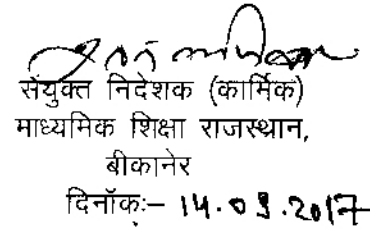 संयुक्त निदेशक (कार्मिक)
माध्यमिक शिक्षा राजस्थान,
बीकानेर
दिनॉक:– 14.09.2017